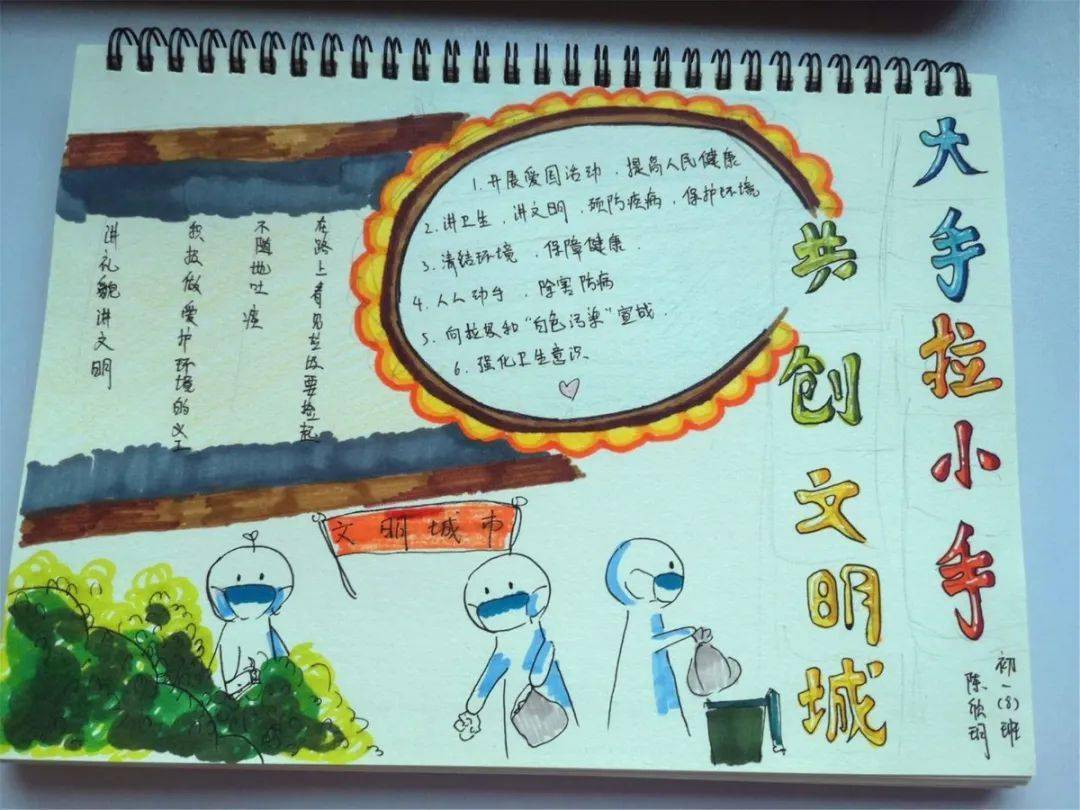 大手拉小手
共创文明城
初一(8)班
陈欣玥
1.开展爱国活动，提高人民健康
2.讲卫生，讲文明，预防疾病，保护环境
3.清结环境，保障健康.
4.人人动手，除害防病
5.向垃圾和“白色污染”宣战.
6.强化卫生意识、
在路上看见垃圾要捡起
不随地吐痰
我救做爱护环境的义工
讲礼貌讲文明
文明城市